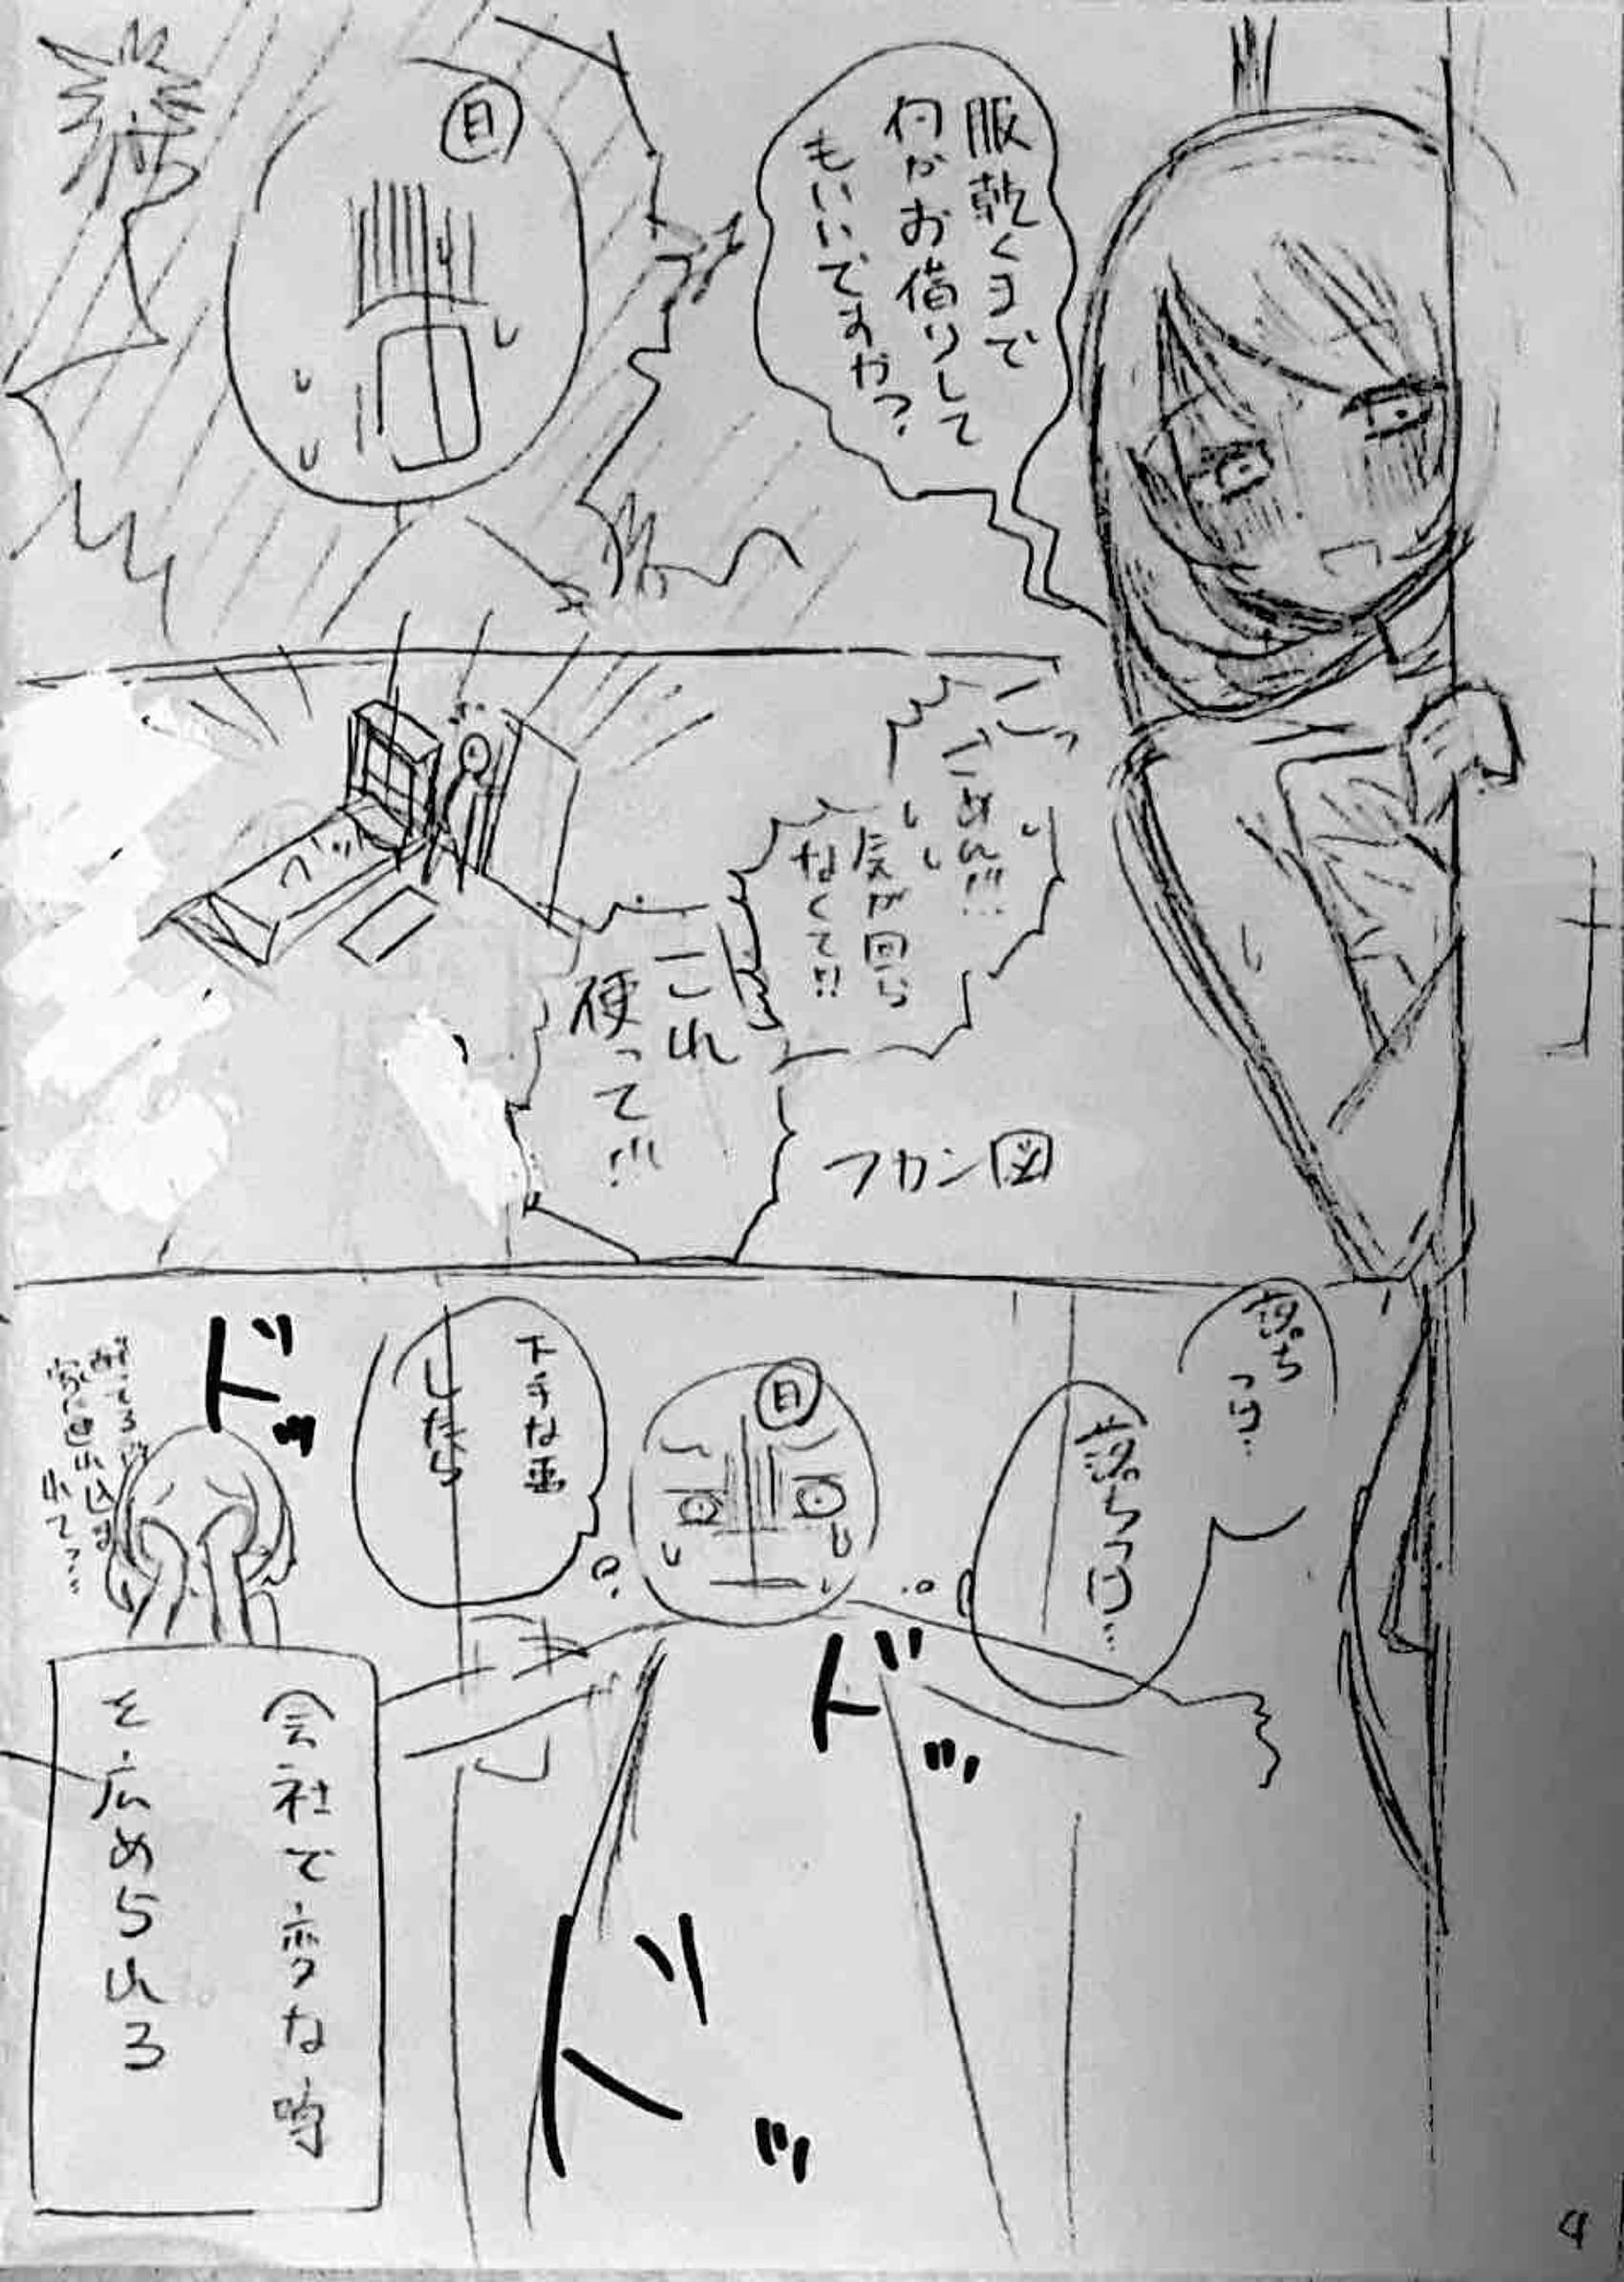 服乾くまで
何かお借りして
もいいですか?
目
ごめん!!
気が回ら
なくて!!
これ
使って!!!
ベッド
フカン図
落ち
つけ…
落ちつけ…
目
下手な事
したら
ドッ
ドッ
ドッ
会社で変な噂
を広められる
4